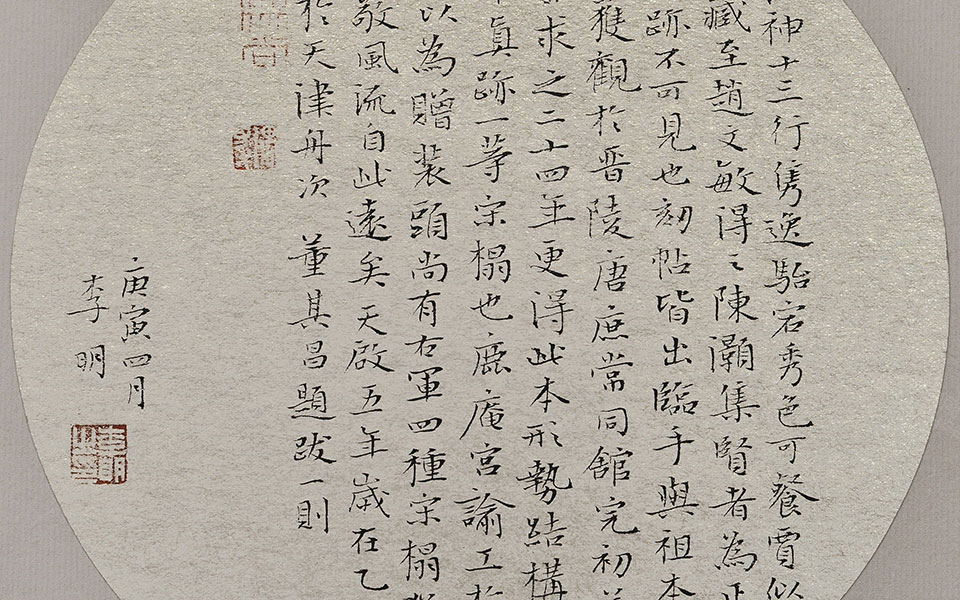 神十三行雋逸駘宕秀色可餐賈似
藏至趙文敏得〻陳灝集賢者為正
跡不可見也刻帖皆出臨手與祖本
獲觀於晉陵唐庶常同館完初
求之二十四年更得此本形勢結構
真跡一等宋榻也鹿庵宮諭工於
以為贈裝頭尚有右軍四種宋榻
敬風流自此遠矣天啟五年歲在乙
於天津舟次 董其昌題跋一則
庚寅四月
李明